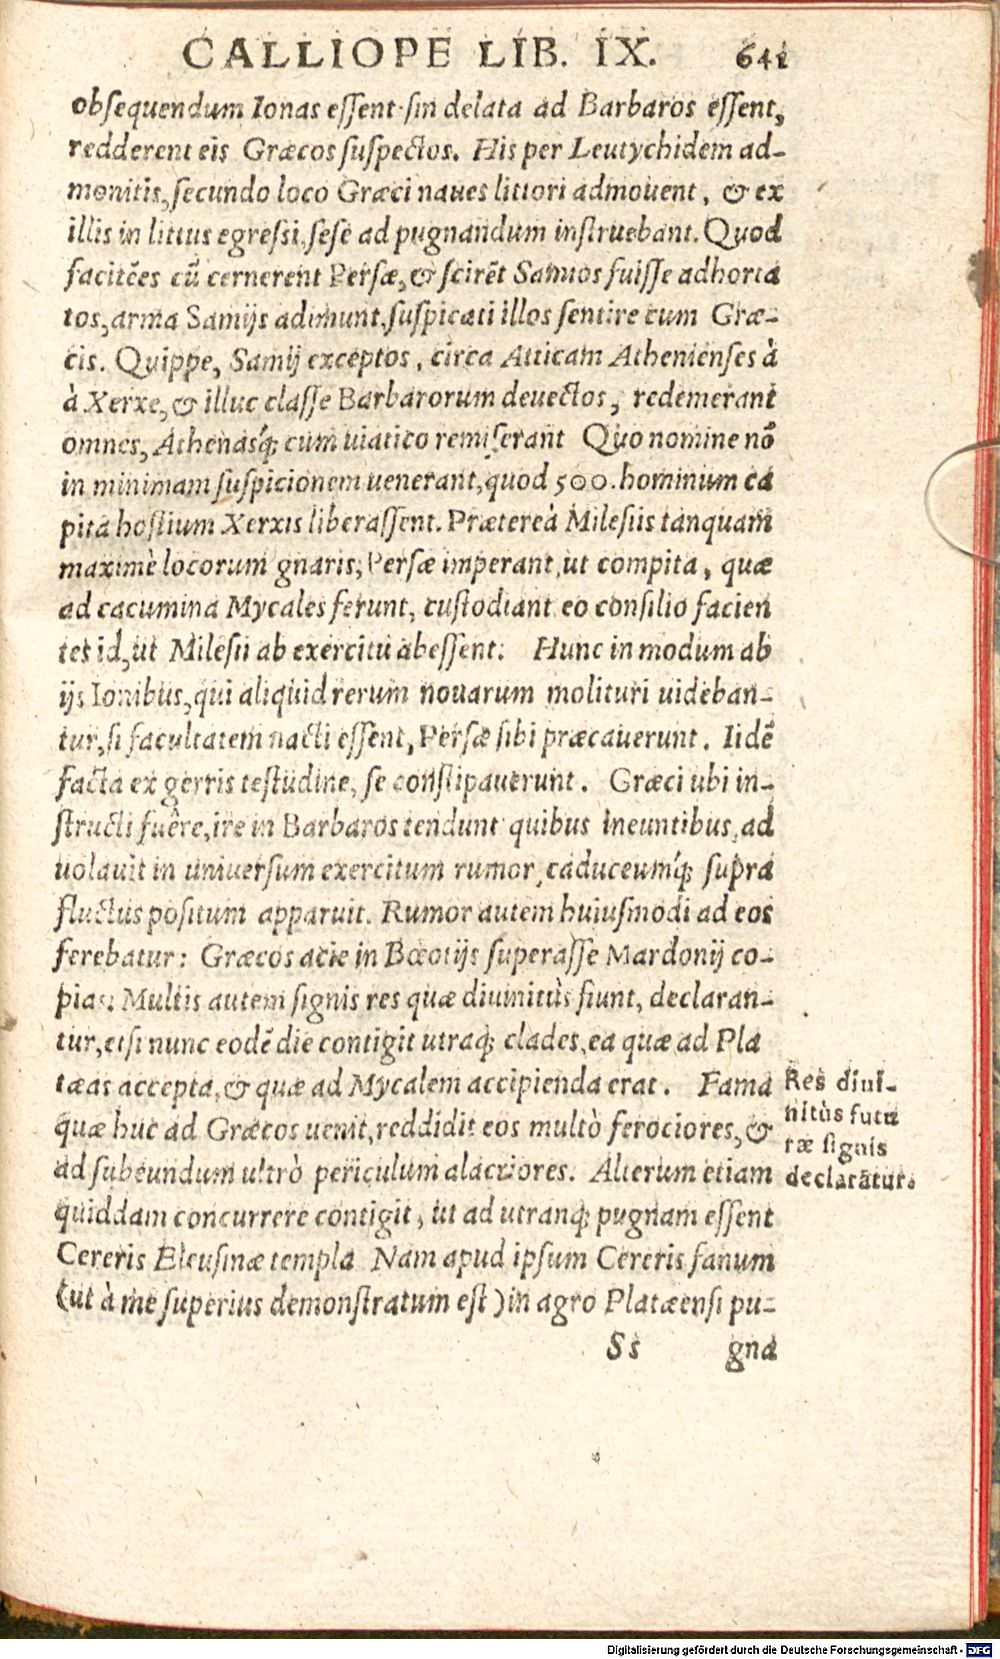 CALLIOPE LIB. IX. 641
obſequendum Ionas eſſent·ſin delata ad Barbaros eſſent,
redderent eis Græcos ſuſpectos. His per Leutychidem ad-
monitis, ſecundo loco Græci naues littori admouent, & ex
illis in littus egreſsi, ſeſe ad pugnandum inſtruebant. Quod
facitẽes cũ cernerent Perſæ, & ſcirẽt Samios fuiſſe adhorta
tos, arma Samijs adimunt, ſuſpicati illos ſentire cum Græ-
cis. Quippe, Samij exceptos, circa Atticam Athenienſes à
à Xerxe, & illuc claſſe Barbarorum deuectos, redemerant
omnes, Athenasq́; cum uiatico remiſerant Quo nomine nõ
in minimam ſuſpicionem uenerant, quod 500. hominum ca
pita hoſtium Xerxis liberaſſent. Prætereà Mileſiis tanquam
maximè locorum gnaris, Perſæ imperant, ut compita, quæ
ad cacumina Mycales ferunt, cuſtodiant eo conſilio facien
tes id, ut Mileſii ab exercitu abeſſent. Hunc in modum ab
ijs Ionibus, qui aliquid rerum nouarum molituri uideban-
tur, ſi facultatem nacti eſſent, Perſæ ſibi præcauerunt. Iidẽ
facta ex gerris teſtudine, ſe conſtipauerunt. Græci ubi in-
ſtructi fuêre, ire in Barbaros tendunt quibus ineuntibus, ad
uolauit in uniuerſum exercitum rumor, caduceumq́; ſupra
fluctus poſitum apparuit. Rumor autem huiuſmodi ad eos
ferebatur: Græcos acie in Bœotijs ſuperaſſe Mardonij co-
pias: Multis autem ſignis res quæ diuinitùs fiunt, declaran-
tur, etſi nunc eodẽ die contigit utraq; clades, ea quæ ad Pla
tæas accepta, & quæ ad Mycalem accipienda erat. Fama
quæ huc ad Græcos uenit, reddidit eos multò ferociores, &
ad ſubeundum ultrò periculum alacriores. Alterum etiam
quiddam concurrere contigit, ut ad utranq; pugnam eſſent
Cereris Eleuſinæ templa Nam apud ipſum Cereris fanum
(ut à me ſuperius demonſtratum eſt) in agro Platæenſi pu-
Ss gna
Res diui-
nitùs futu
ræ ſignis
declarãtur.
Digitalisierung gefördert durch die Deutsche Forschungsgemeinschaft - DFG